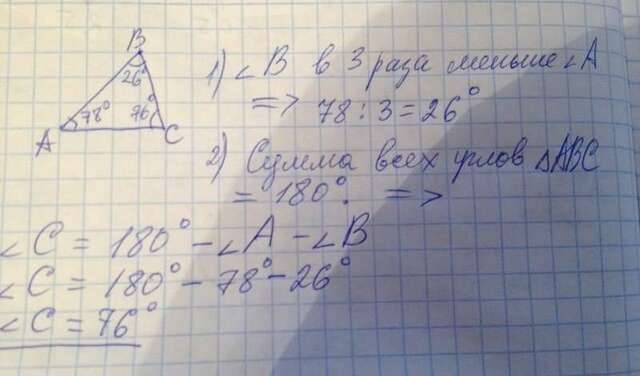 B
26°
78° 76°
A C
1) ∠B в 3 раза меньше ∠A
=> 78 : 3 = 26°
2) Сумма всех углов △ABC
= 180°. =>
∠C = 180° - ∠A - ∠B
∠C = 180° - 78° - 26°
∠C = 76°